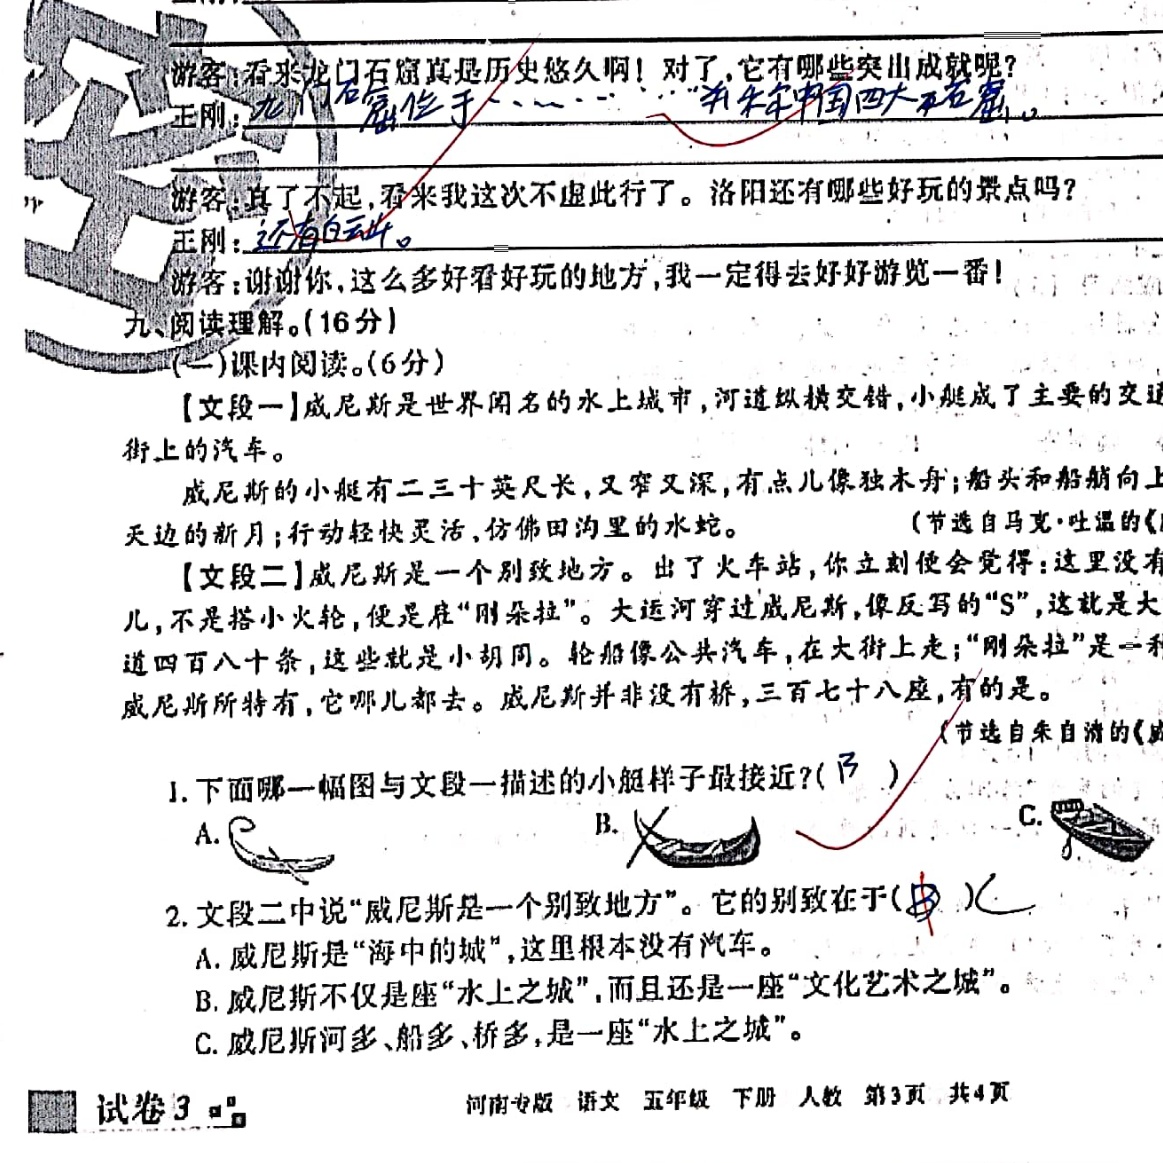 游客:看来龙门石窟真是历史悠久啊!对了,它有哪些突出成就呢?
王刚:龙门石窟位于……并称中国四大石窟。
游客:真了不起,看来我这次不虚此行了。洛阳还有哪些好玩的景点吗?
王刚:还有白云山。
游客:谢谢你,这么多好看好玩的地方,我一定得去好好游览一番!
九、阅读理解。(16分)
(一)课内阅读。(6分)
【文段一】威尼斯是世界闻名的水上城市,河道纵横交错,小艇成了主要的交通
街上的汽车。
威尼斯的小艇有二三十英尺长,又窄又深,有点儿像独木舟;船头和船艄向上
天边的新月;行动轻快灵活,仿佛田沟里的水蛇。
(节选自马克·吐温的《
【文段二】威尼斯是一个别致地方。出了火车站,你立刻便会觉得:这里没有
儿,不是搭小火轮,便是雇“刚朵拉”。大运河穿过威尼斯,像反写的“S”,这就是大
道四百八十条,这些就是小胡同。轮船像公共汽车,在大街上走;“刚朵拉”是一种
威尼斯所特有,它哪儿都去。威尼斯并非没有桥,三百七十八座,有的是。
(节选自朱自清的《威
1.下面哪一幅图与文段一描述的小艇样子最接近?(B)
A.
B.
C.
2.文段二中说“威尼斯是一个别致地方”。它的别致在于(B)C
A.威尼斯是“海中的城”,这里根本没有汽车。
B.威尼斯不仅是座“水上之城”,而且还是一座“文化艺术之城”。
C.威尼斯河多、船多、桥多,是一座“水上之城”。
试卷3
河南专版 语文 五年级 下册 人教 第3页 共4页